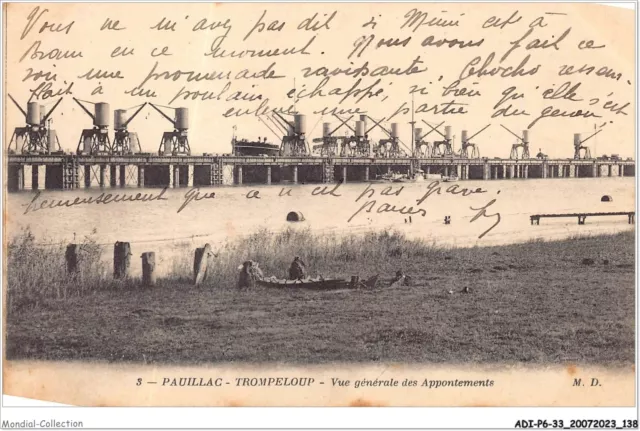 Vous ne m'avez pas dit si Mimi est à
Bram en ce moment. Nous avons fait ce
soir une promenade ravissante. Chocho ressem-
blait à un poulain échappé, si bien qu'elle s'est
enlevé une partie du genou
heureusement que ça n'est pas grave.
3 — PAUILLAC - TROMPELOUP - Vue générale des Appontements
M. D.
Mondial-Collection
ADI-P6-33_20072023_138